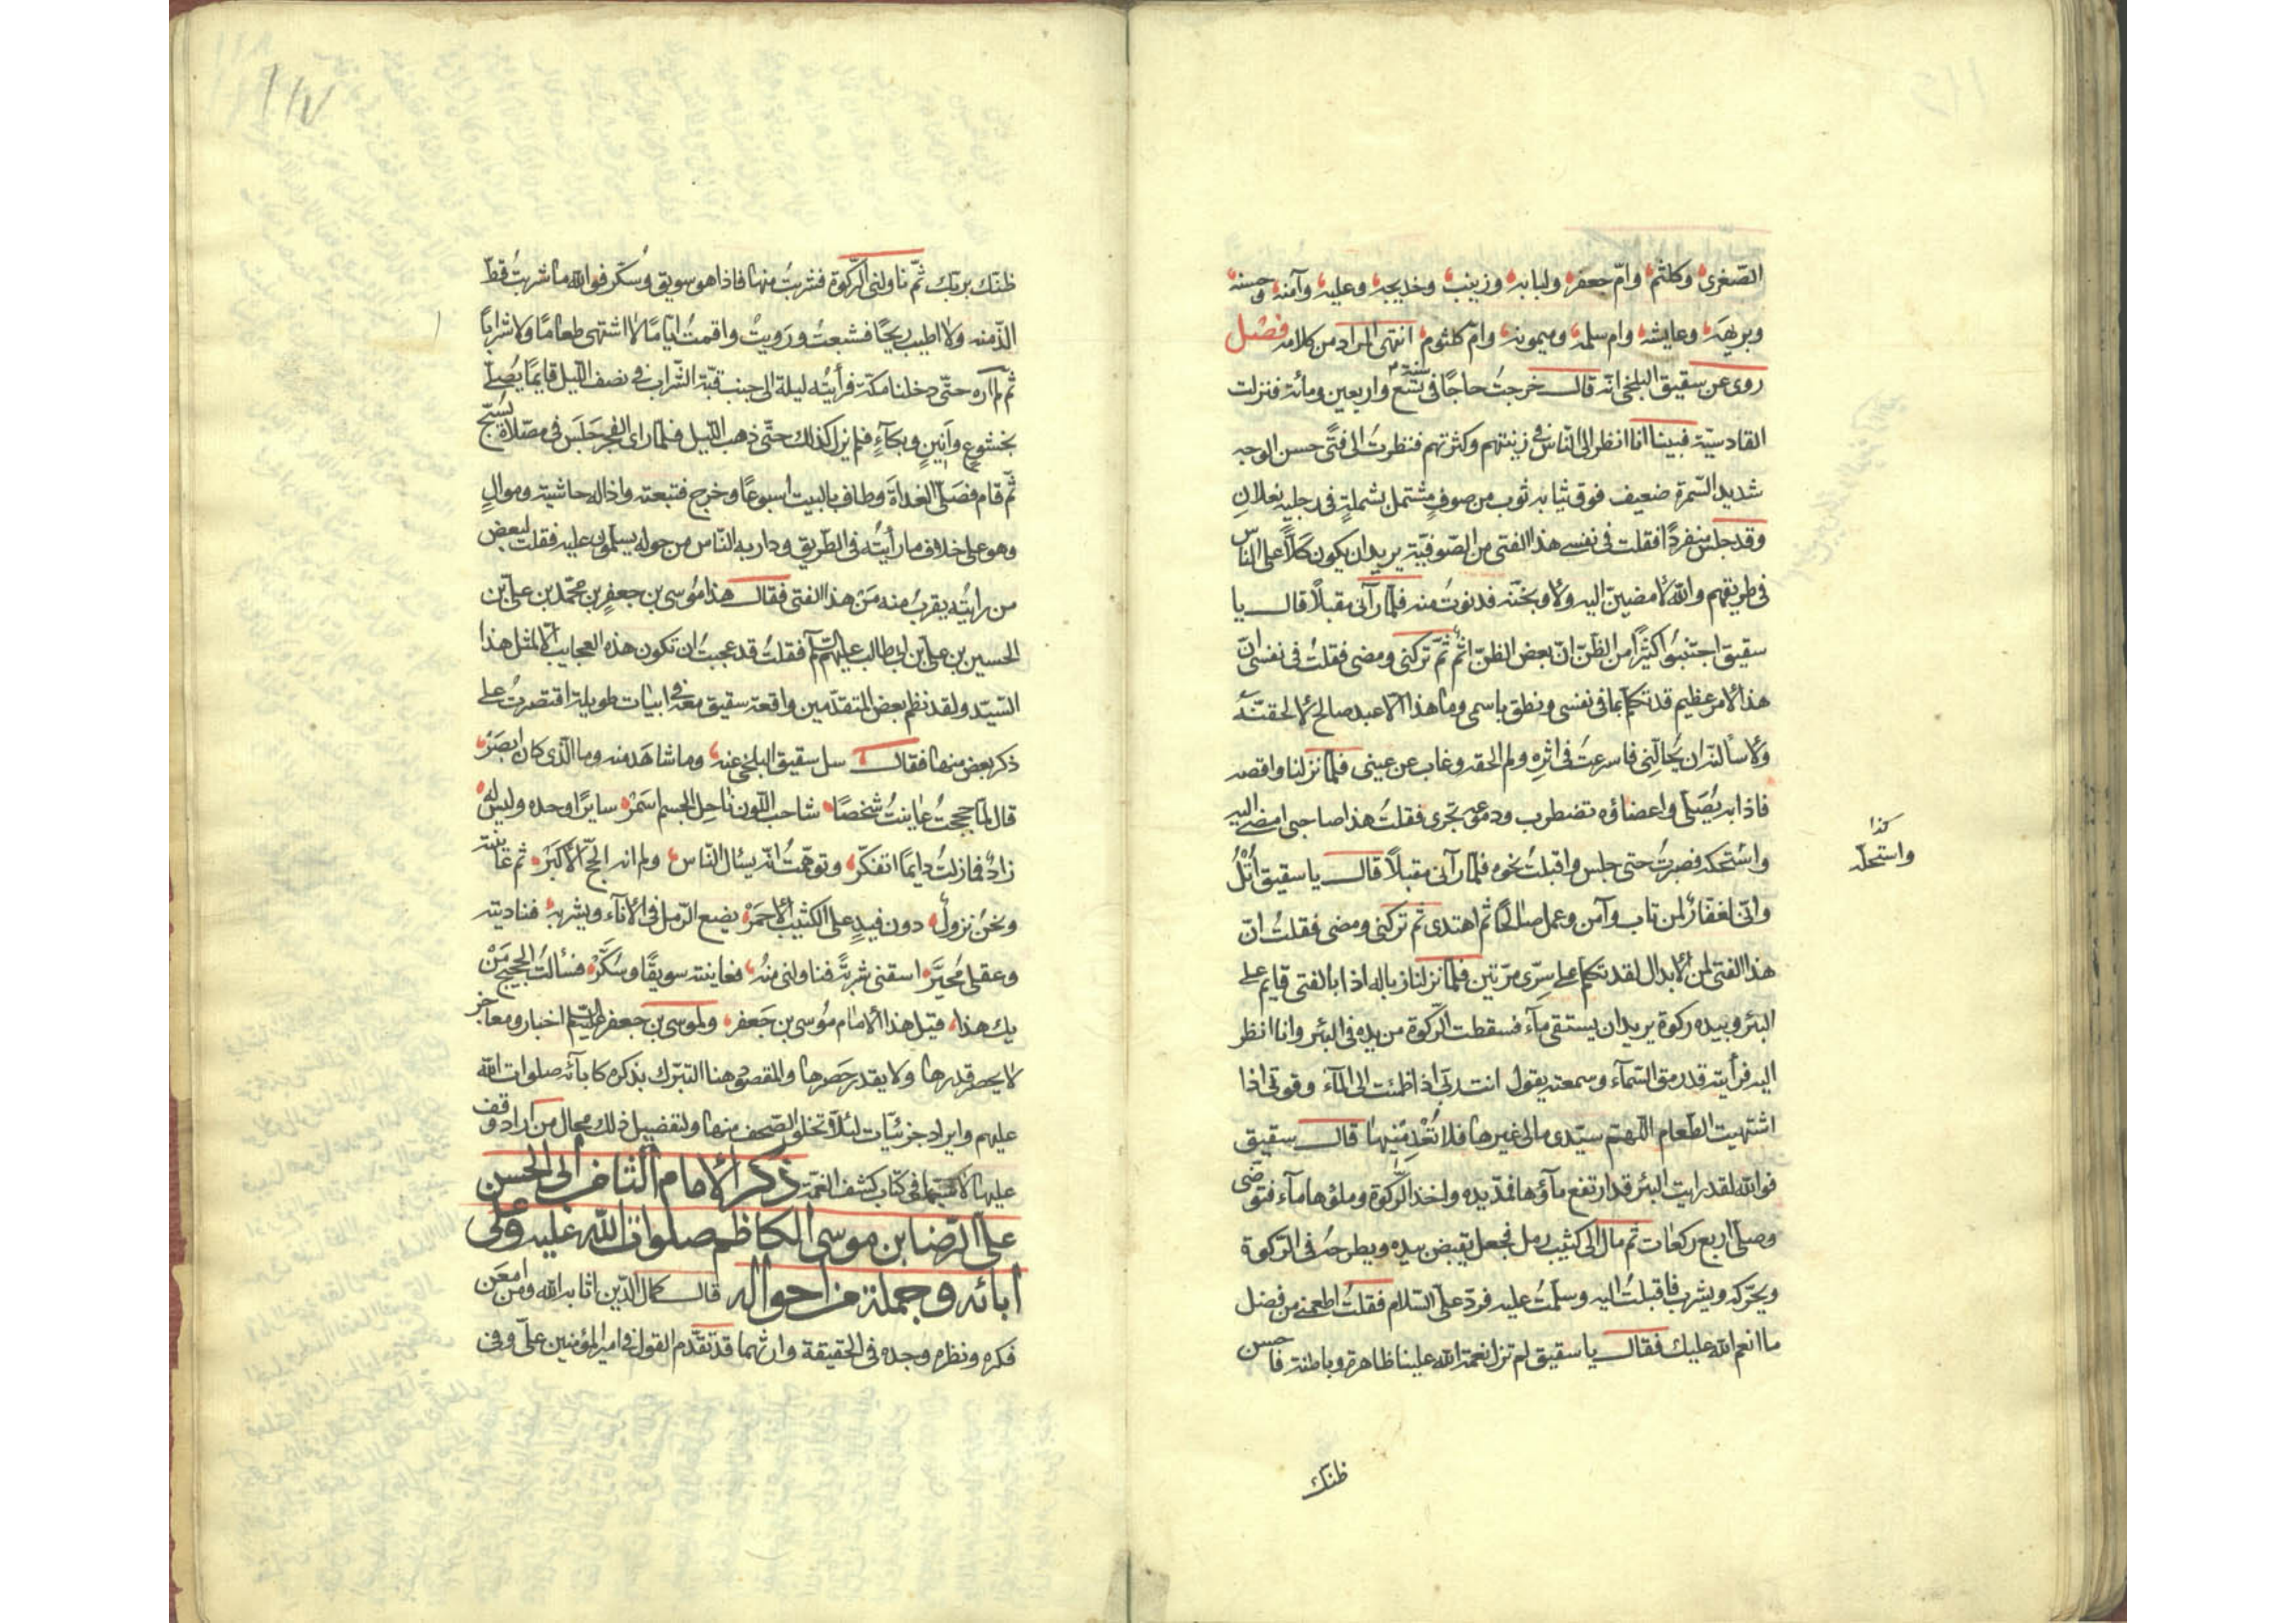 الصّغرى وكلثم وامّ جعفر ولبابه وزينب وخديجه وعليه وآمنه وحسنه
وبريهه وعايشه وام سلمه وميمونه وامّ كلثوم انتهى المراد من كلامه فصل
روى عن سقيق البلخى انّه قال خرجتُ حاجًا فى سنة تسع واربعين ومائة فنزلت
القادسيّة فبينا انا انظر الى النّاس فى زينتهم وكثرتهم فنظرت الى فتًى حسن الوجه
شديد السّمرة ضعيف فوق ثيابه ثوب من صوفٍ مشتمل بشملةٍ فى رجليه نعلان
وقد جلس منفردًا فقلت فى نفسى هذا الفتى من الصّوفيّة يريد ان يكون كَلًّا على الناس
فى طريقهم والله لامضينّ اليه ولاوبخنّه فدنوتُ منه فلمّا رآنى مقبلًا قال يا
سقيق اجتنبُوا كثيرًا من الظّنّ انّ بعض الظنّ اثم ثمّ تركنى ومضى فقلتُ فى نفسى انّ
هذا لامر عظيم قد تكلّم بما فى نفسى ونطق باسمى وما هذا الّا عبد صالح لالحقنّه
ولاسألنّه ان يُحالّنى فاسرعتُ فى اثرِه ولم الحقه وغاب عن عينى فلمّا نزلنا واقصه
فاذا به يُصَلّى واعضاؤه تضطرب ودموعه تجرى فقلتُ هذا صاحبى امضى اليه
واستحكه فصبرتُ حتى جلس واقبلتُ نحوه فلمّا رآنى مقبلاً قال يا سقيق اُتْلُ
وانّى لغفّارٌ لمن تاب وآمن وعمل صالحًا ثم اهتدى ثم تركنى ومضى فقلتُ انّ
هذا الفتى لمن الابدال لقد تكلم على سِرّى مرّتين فلمّا نزلنا زباله اذا بالفتى قايم على
البئر وبيده ركوة يريد ان يستقى مآء فسقطت الرّكوة من يده فى البئر وانا انظر
اليه فرأيته قد رمق السّمآء وسمعته يقول انت ربّى اذا ظمئت الى المآء وقوتى اذا
اشتهيت الطّعام اللهم سيّدى مالى غيرها فلا تُعْدِمْنيها قال سقيق
فوالله لقد رايت البئر قد ارتفع مآؤها فمدّ يده واخذ الرّكوة وملؤها مآء فتوضّى
وصلّى اربع ركعات ثم مال الى كثيب رمل فجعل يقبض بيده ويطرحه فى الرّكوة
ويحرّكه ويشرب فاقبلتُ اليه وسلّمتُ عليه فردّ علىّ السّلام فقلتُ اطعمنى من فضل
ما انعم الله عليك فقال يا سقيق لم تزل نعمة الله علينا ظاهرة وباطنة فاحسن
ظنّك
كذا
واستحلّه
١١٧
ظنّك بربّك ثمّ ناولنى الرّكوة فشربتُ منها فاذا هو سويق وسُكّر فوالله ما شربتُ قطّ
الذّ منه ولا اطيب ريحًا فشبعتُ ورَويتُ واقمتُ ايّامًا لا اشتهى طعامًا ولا شرابًا
ثم لم اره حتّى دخلنا مكة فرأيتُه ليلة الى جنب قبّة الشّراب فى نصف اللّيل قايمًا يُصلّى
بخشوعٍ وانينٍ وبكآءٍ فلم يزل كذلك حتّى ذهب اللّيل فلمّا راى الفجر جَلَسَ فى مصلّاه يُسبّح
ثمّ قام فصَلّى الغداةَ وطاف بالبيت اسبوعًا وخرج فتبعته واذا له حاشية وموالٍ
وهو على خلاف ما رأيتُه فى الطّريق ودار به النّاس من حوله يسلّمون عليه فقلتُ لبعض
من رايتُه يقربُ منه مَنْ هذا الفتى فقال هذا مُوسى بن جعفرٍ بن محمّد بن علىّ بن
الحسين بن علىّ بن ابى طالب عليهم السّلام فقلتُ قد عجبتُ ان تكون هذه العجايب الّا لمثل هذا
السّيّد ولقد نظم بعض المتقدّمين واقعة سقيق معه فى ابيات طويلة اقتصرتُ على
ذكر بعض منها فقال سل سقيق البلخى عنه وما شاهد منه وما الّذى كان ابصَرْ
قال لمّا حججتُ عاينتُ شخصًا شاحب اللّون ناحل الجسم اسمَرْ سايرًا وحده وليس له
زادٌ فمازلتُ دايمًا اتفكّر وتوهّمتُ انّه يسئال النّاس ولم ادر انه الحجّ الاكبَرْ ثم عاينته
ونحن نزولٌ دون فيدٍ على الكثيب الاحمَرْ يضع الرّمل فى الانآء ويشربه فناديته
وعقلى مُحيَّرْ اسقنى شربةً فناولنى منهُ فعاينته سويقًا وسُكَّرْ فسألتُ الحجيج مَنْ
يك هذا قيل هذا الامام مُوسى بن جَعفر ولموسى بن جعفر عليه السّلم اخبار ومعاجز
لا يحصر قدرها ولا يقدر حَصرها والمقصود هنا التبرّك بذكره كابآئه صلوات الله
عليهم وايراد جزئيّات لئلّا تخلو الصّحف منها ولتفضيل ذلك مجال من اراد وقف
عليها لاسيّما فى كتاب كشف الغمّة ذكر الامام الثامن ابى الحسن
علىّ الرّضا بن موسى الكاظم صلوات الله عليه وعلى
ابائه وجملة من احواله قال كمال الدّين اثابه الله ومن امعَن
فكره ونظره وجده فى الحقيقة وارثهما قد تقدّم القول فى امير المؤمنين علىّ وفى